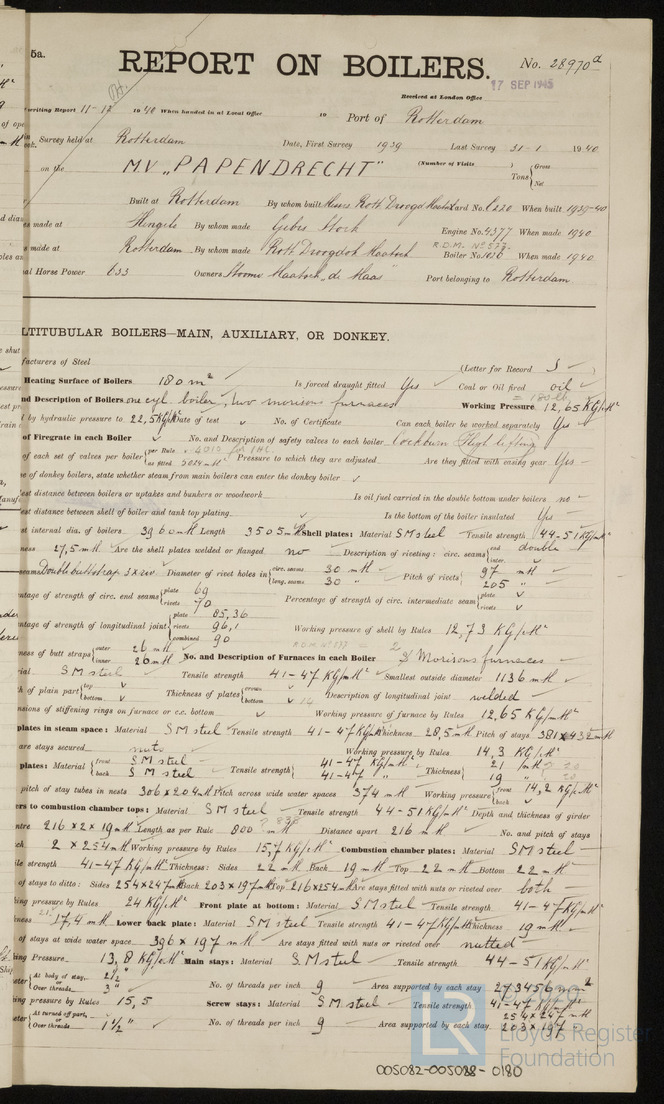 5a.
REPORT ON BOILERS.
No. 28970d
17 SEP 1945
Received at London Office
writing Report 11-12 1940 When handed in at Local Office 19 Port of Rotterdam
Survey held at Rotterdam Date, First Survey 1939 Last Survey 31-1 1940
on the M.V. „PAPENDRECHT" (Number of Visits ) Tons Gross Net
Built at Rotterdam By whom built Yard No. 220 When built 1939-40
made at Hengelo By whom made Gebrs Stork Engine No. 4377 When made 1940
R.D.M. No 577.
made at Rotterdam By whom made Rott Droogdok Maatsch Boiler No. When made 1940
al Horse Power 633 Owners Stoomv Maatsch „de Maas" Port belonging to Rotterdam
LTITUBULAR BOILERS—MAIN, AUXILIARY, OR DONKEY.
facturers of Steel (Letter for Record S )
Heating Surface of Boilers 180 m² Is forced draught fitted Yes Coal or Oil fired oil
= 180 lb.
nd Description of Boilers one cyl boiler, two morisons furnaces Working Pressure 12,65 KG/cM²
by hydraulic pressure to 22,5 KG/cM² Date of test No. of Certificate Can each boiler be worked separately Yes
of Firegrate in each Boiler No. and Description of safety valves to each boiler Cockburn High lifting
of each set of valves per boiler per Rule as fitted Pressure to which they are adjusted Are they fitted with easing gear Yes
e of donkey boilers, state whether steam from main boilers can enter the donkey boiler
est distance between boilers or uptakes and bunkers or woodwork Is oil fuel carried in the double bottom under boilers no
est distance between shell of boiler and tank top plating Is the bottom of the boiler insulated Yes
st internal dia. of boilers 3960 mM Length 3505 mM Shell plates: Material SM steel Tensile strength 44-51 KG/mM²
ness 27,5 mM Are the shell plates welded or flanged no Description of riveting: circ. seams end double inter.
seams Double buttstrap 3 x riv Diameter of rivet holes in circ. seams 30 mM long. seams 30 " Pitch of rivets 97 mM 205 "
ntage of strength of circ. end seams plate 69 rivets 70 Percentage of strength of circ. intermediate seam plate rivets
ntage of strength of longitudinal joint plate 85,36 rivets 96,1 combined 90 Working pressure of shell by Rules 12,73 KG/cM²
ness of butt straps outer 26 mM inner 26 mM No. and Description of Furnaces in each Boiler 2 Morisons furnaces
ial SM steel Tensile strength 41-47 KG/mM² Smallest outside diameter 1136 mM
h of plain part top bottom Thickness of plates crown bottom 14 Description of longitudinal joint welded
nsions of stiffening rings on furnace or c.c. bottom Working pressure of furnace by Rules 12,65 KG/cM²
plates in steam space: Material SM steel Tensile strength 41-47 KG/mM² Thickness 28,5 mM Pitch of stays 381x432 mM
are stays secured nuts Working pressure by Rules 14,3 KG/cM²
plates: Material front SM steel back SM steel Tensile strength 41-47 KG/mM² 41-47 " Thickness 21 mM 19 " 20 20
pitch of stay tubes in nests 306x204 mM Pitch across wide water spaces 374 mM Working pressure front 14,2 KG/cM² back
ers to combustion chamber tops: Material SM steel Tensile strength 44-51 KG/mM² Depth and thickness of girder
ntre 216x2x19 mM Length as per Rule 800 mM Distance apart 216 mM No. and pitch of stays
ch. 2 x 254 mM Working pressure by Rules 15,7 KG/cM² Combustion chamber plates: Material SM steel
le strength 41-47 KG/mM² Thickness: Sides 22 mM Back 19 mM Top 22 mM Bottom 22 mM
of stays to ditto: Sides 254x247 mM Back 203x197 mM Top 216x254 mM Are stays fitted with nuts or riveted over both
ing pressure by Rules 24 KG/cM² Front plate at bottom: Material SM steel Tensile strength 41-47 KG/mM²
ness 17,4 mM Lower back plate: Material SM steel Tensile strength 41-47 KG/mM² Thickness 19 mM
of stays at wide water space 396 x 197 mM Are stays fitted with nuts or riveted over nutted
ing Pressure 13,8 KG/cM² Main stays: Material SM steel Tensile strength 44-51 KG/mM²
eter At body of stay, or Over threads 2½" 3" No. of threads per inch 9 Area supported by each stay 273456 mM²
ing pressure by Rules 15,5 Screw stays: Material SM steel Tensile strength 41-47 KG/mM²
eter At turned off part, or Over threads 1½" No. of threads per inch 9 Area supported by each stay 254x247 mM 203x197
© 2020
LR
Lloyd's Register
Foundation
005082-005088-0180